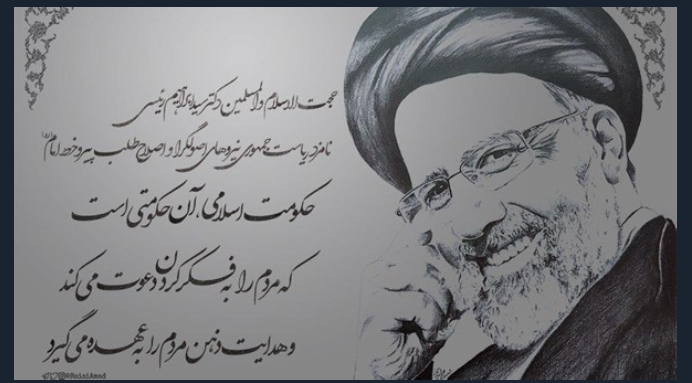 حجت الاسلام والمسلمین دکتر سید ابراهیم رئیسی
نامزد ریاست جمهوری نیروهای اصولگرا و اصلاح طلب پیرو خط امام (ره)
حکومت اسلامی، آن حکومتی است
که مردم را به فکر کردن دعوت می کند
و هدایت ذهن مردم را به عهده می گیرد
@RaisiAmad